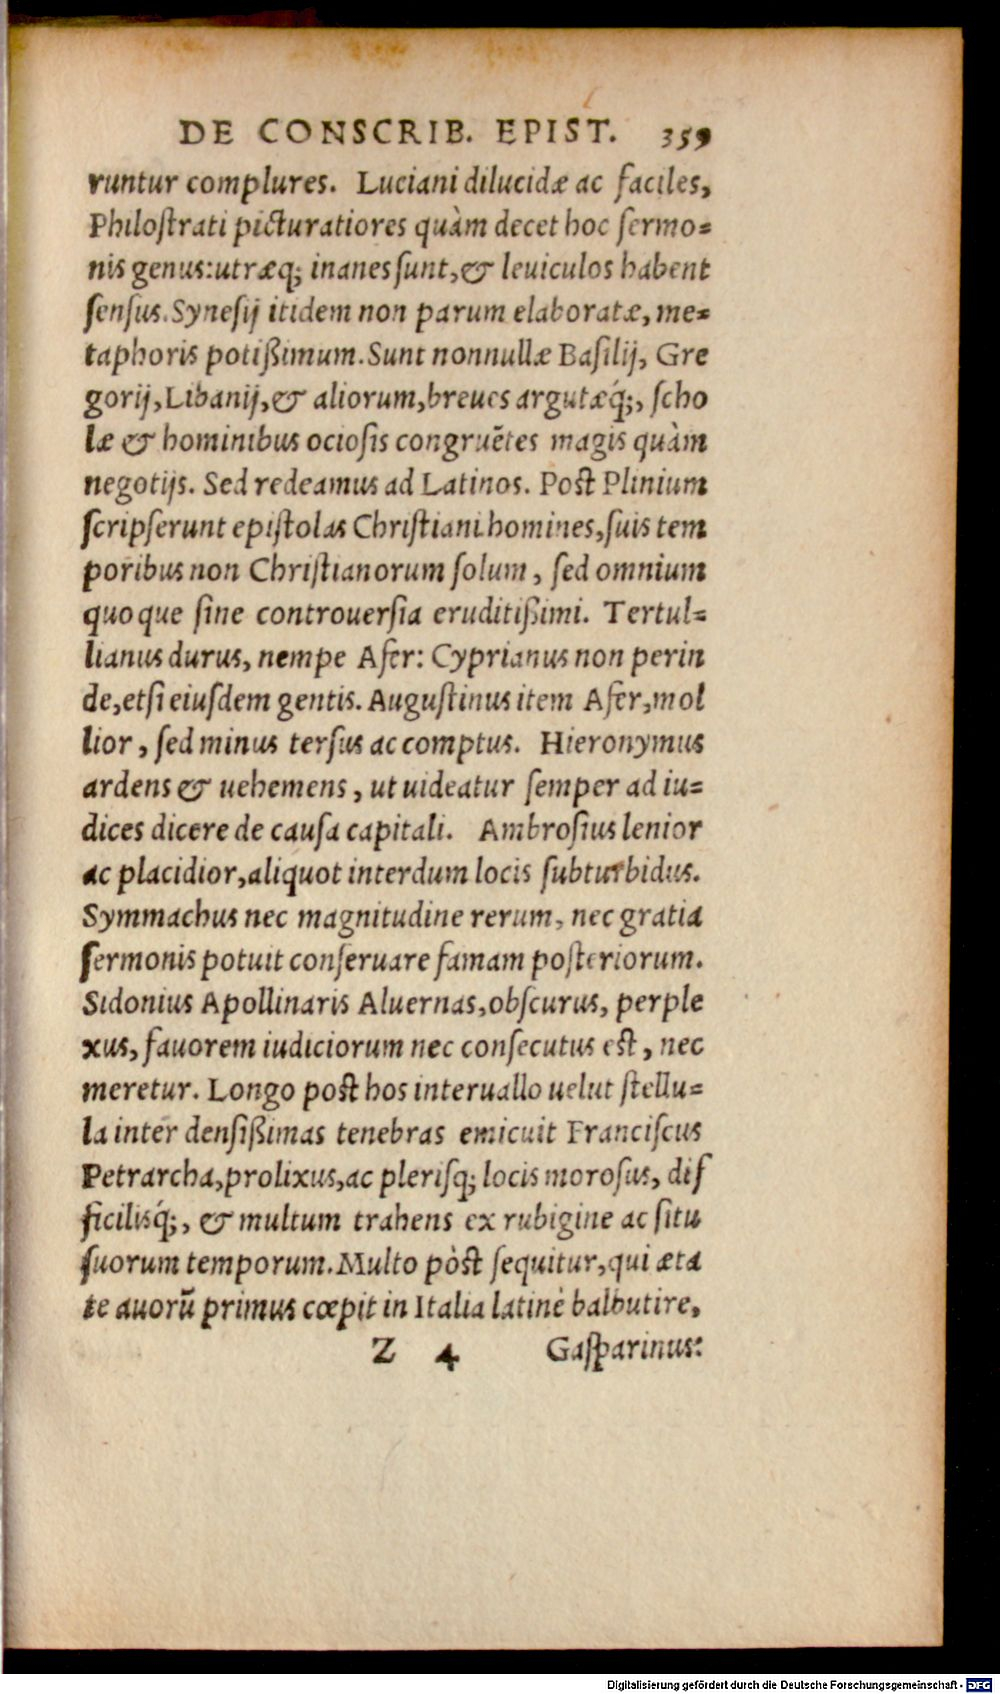 DE CONSCRIB. EPIST. 359
runtur complures. Luciani dilucidæ ac faciles,
Philostrati picturatiores quàm decet hoc sermo=
nis genus:utræq; inanes sunt,& leuiculos habent
sensus. Synesij itidem non parum elaboratæ, me=
taphoris potißimum. Sunt nonnullæ Basilij, Gre
gorij, Libanij,& aliorum, breues argutæq́;, scho
læ & hominibus ociosis congruẽtes magis quàm
negotijs. Sed redeamus ad Latinos. Post Plinium
scripserunt epistolas Christiani homines, suis tem
poribus non Christianorum solum, sed omnium
quoque sine controuersia eruditißimi. Tertul=
lianus durus, nempe Afer: Cyprianus non perin
de, etsi eiusdem gentis. Augustinus item Afer, mol
lior, sed minus tersus ac comptus. Hieronymus
ardens & uehemens, ut uideatur semper ad iu=
dices dicere de causa capitali. Ambrosius lenior
ac placidior, aliquot interdum locis subturbidus.
Symmachus nec magnitudine rerum, nec gratia
sermonis potuit conseruare famam posteriorum.
Sidonius Apollinaris Aluernas, obscurus, perple
xus, fauorem iudiciorum nec consecutus est, nec
meretur. Longo post hos interuallo uelut stellu=
la inter densißimas tenebras emicuit Franciscus
Petrarcha, prolixus, ac plerisq; locis morosus, dif
ficilisq́;, & multum trahens ex rubigine ac situ
suorum temporum. Multo pòst sequitur, qui æta
te auorũ primus cœpit in Italia latinè balbutire,
Z 4 Gasparinus:
Digitalisierung gefördert durch die Deutsche Forschungsgemeinschaft - DFG